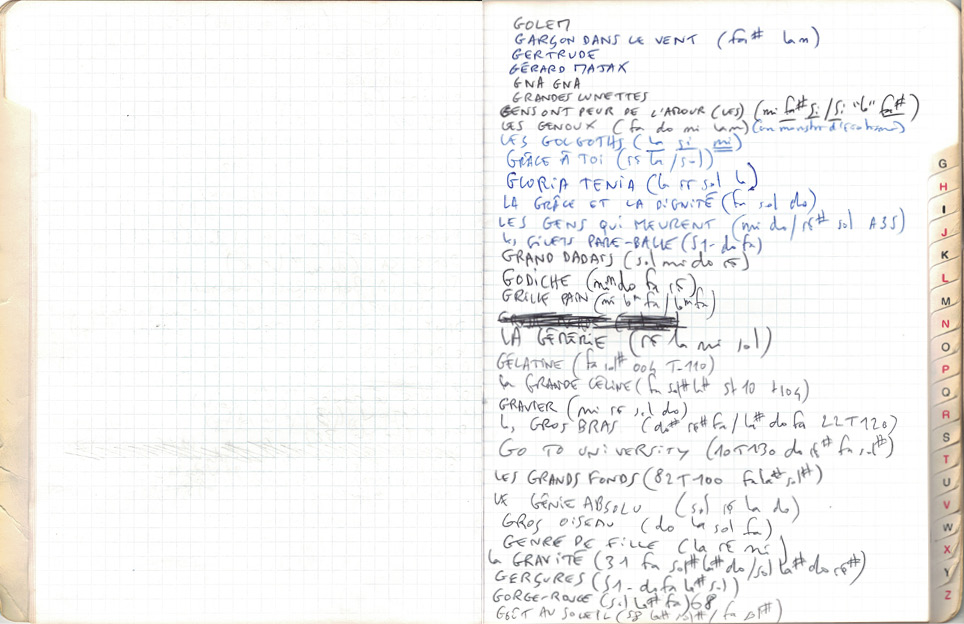 GOLEM
GARÇON DANS LE VENT (fa# lam)
GERTRUDE
GÉRARD MAJAX
GNA GNA
GRANDES LUNETTES
GENS ONT PEUR DE L'AMOUR (LES) (mi fa# si / si "b" fa#)
LES GENOUX (fa do mi lam)
LES GOLGOTHS (la si mi)
GRÂCE À TOI (ré la / sol)
GLORIA TENIA (la ré sol la)
LA GRÂCE ET LA DIGNITÉ (fa sol do)
LES GENS QUI MEURENT (mi do / ré# sol A35)
GILETS PARE-BALLE (51- do fa)
GRAND DADAIS (sol mi do ré)
GODICHE (mim do fa ré)
GRILLE PAIN (mi lam fa / lam fa)
LA GÊNERIE (ré la mi sol)
GÉLATINE (fa sol# 004 T-110)
la GRANDE CÉLINE (fa sol# la# St 10 t104)
GRAVIER (mi ré sol do)
Les GROS BRAS (do# ré# fa / la# do fa 22 T120)
GO TO UNIVERSITY (10T130 do ré# fa sol#)
LES GRANDS FONDS (82T100 fa la# sol#)
LE GÉNIE ABSOLU (sol ré la do)
GROS OISEAU (do la sol fa)
GENRE DE FILLE (la ré mi)
la GRAVITÉ (31 fa sol# la# do / sol la# do ré#)
GERÇURES (51- do fa la# sol)
GORGE-ROUGE (sol la# fa) 68
GOÛT AU SOLEIL (58
G
H
I
J
K
L
M
N
O
P
Q
R
S
T
U
V
W
X
Y
Z